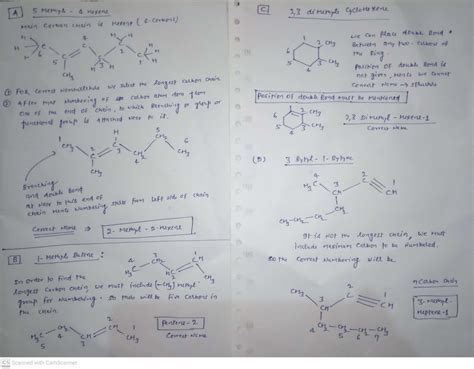 A 5 Methyl - 4 Hexene
Main Carbon chain is Hexene (6-Carbons)
① For Correct Nomenclature we select the longest Carbon Chain
② After that Numbering of Carbon atom from
one of the end of Chain, to which Branching or group or
functional group is attached near to it.
CH3
Branching
and double Bond
is near to this end of
chain Hence Numbering starts from left side of chain
Correct Name → 2-Methyl-2-Hexene
B 1-Methyl Butene :
In order to find the
longest Carbon Chain we must include (-CH3) Methyl
group for Numbering. So there will be Five Carbons in
the chain.
Pentene-2
Correct Name
C 2,3 dimethyl Cyclohexene
CH3
CH3
we can place double Bond
Between any two Carbons of
the Ring.
Position of double Bond is
not given, Hence we cannot
Correct Name
Position of double Bond must be mentioned
CH3
CH3
2,3 Dimethyl-Hexene-1
Correct Name
(D) 3 Butyl-1-Butyne
It is not the longest chain, we must
include maximum Carbon to be Numbered.
So the Correct Numbering will be
7 Carbon Chain
3-Methyl-
Heptyne-1
CS Scanned with CamScanner